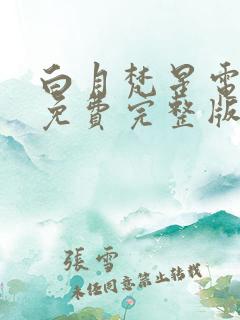 白月梵星電
免費完整版
張雪
未经同意禁止转载